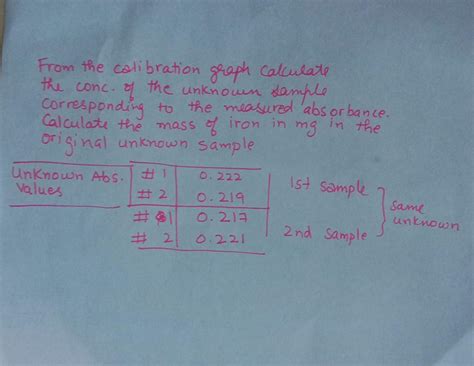 From the calibration graph calculate
the conc. of the unknown sample
corresponding to the measured absorbance.
Calculate the mass of iron in mg in the
original unknown sample
Unknown Abs. Values
# 1 0.222
# 2 0.219
1st sample
# 1 0.217
# 2 0.221
2nd sample
same unknown